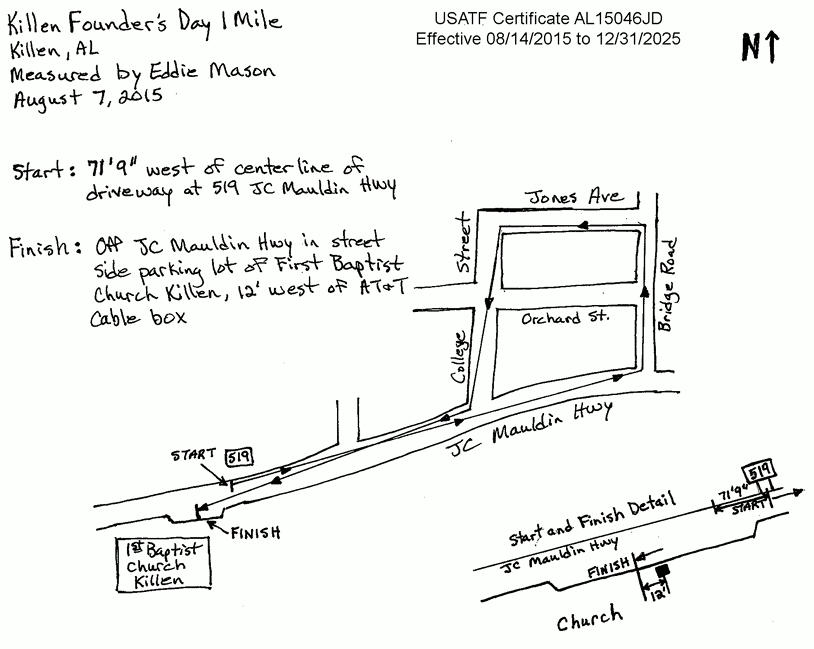 Killen Founder's Day 1 Mile
Killen, AL
Measured by Eddie Mason
August 7, 2015
USATF Certificate AL15046JD
Effective 08/14/2015 to 12/31/2025
N
Start: 71'9" west of centerline of
driveway at 519 JC Mauldin Hwy
Finish: Off JC Mauldin Hwy in street
side parking lot of First Baptist
Church Killen, 12' west of AT&T
Cable box
Jones Ave
College Street
Bridge Road
Orchard St.
JC Mauldin Hwy
START
519
FINISH
1st Baptist
Church
Killen
Start and Finish Detail
JC Mauldin Hwy
519
71'9"
START
FINISH
12'
Church